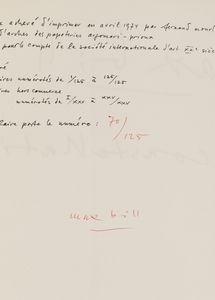 achevé d'imprimer en avril 1974 par fernand
d'arches des papeteries arjomari-prioux
pour le compte de la société internationale d'art XXe
numérotés de 1/125 à 125/125
hors commerce
numérotés de I/XXV à XXV/XXV
porte le numéro : 70/125
max bill